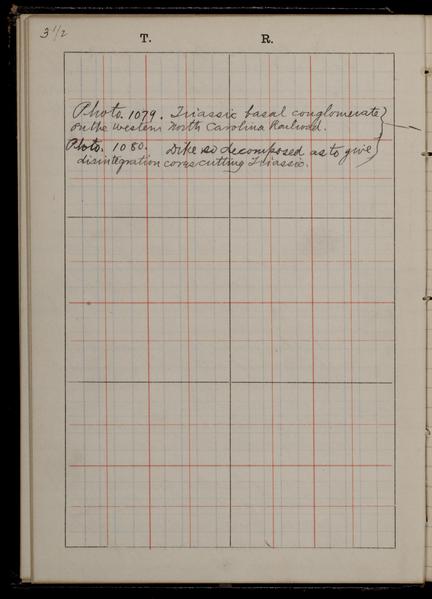 3 1/2
T. R.
Photo. 1079. Triassic basal conglomerate
on the western North Carolina Railroad.
Photo. 1080. Dike so decomposed as to give
disintegration cores cutting Triassic.